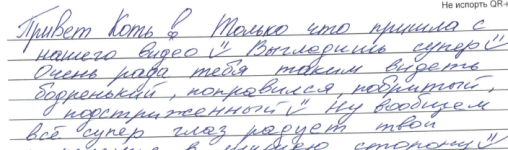 Не испорть QR-к
Привет Коть! Только что пришла с
нашего видео" Выглядишь супер"
Очень рада тебя таким видеть
бодренький, поправился, побритый,
подстриженный" Ну вообщем
всё супер глаз радует твои
в лучшую сторону"